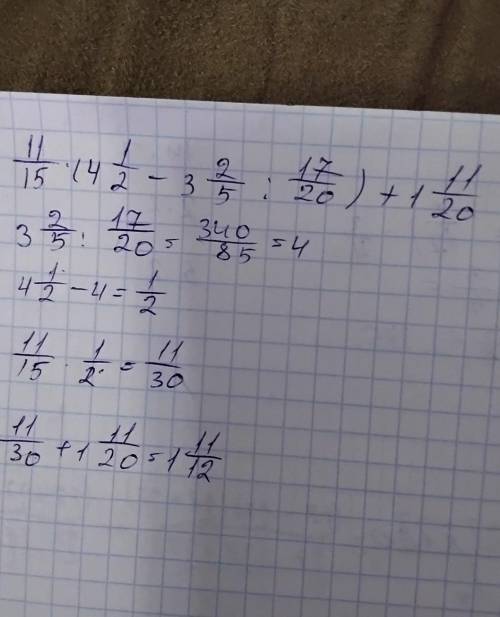 11/15 · (4 1/2 - 3 2/5 : 17/20) + 1 11/20
3 2/5 : 17/20 = 340/85 = 4
4 1/2 - 4 = 1/2
11/15 · 1/2 = 11/30
11/30 + 1 11/20 = 1 11/12